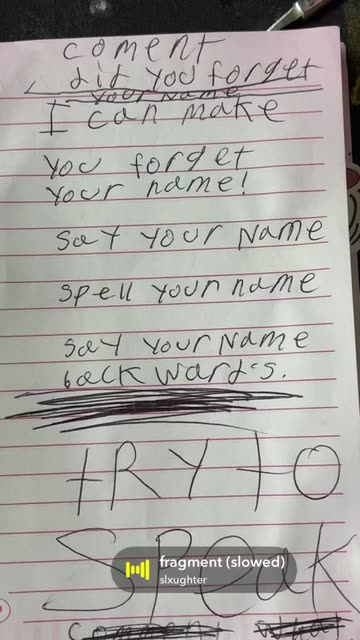 coment
did you forget
your name
I can make
you forget
your name!
say your name
spell your name
say your name
back ward's.
tRY to
SPeak
fragment (slowed)
slxughter